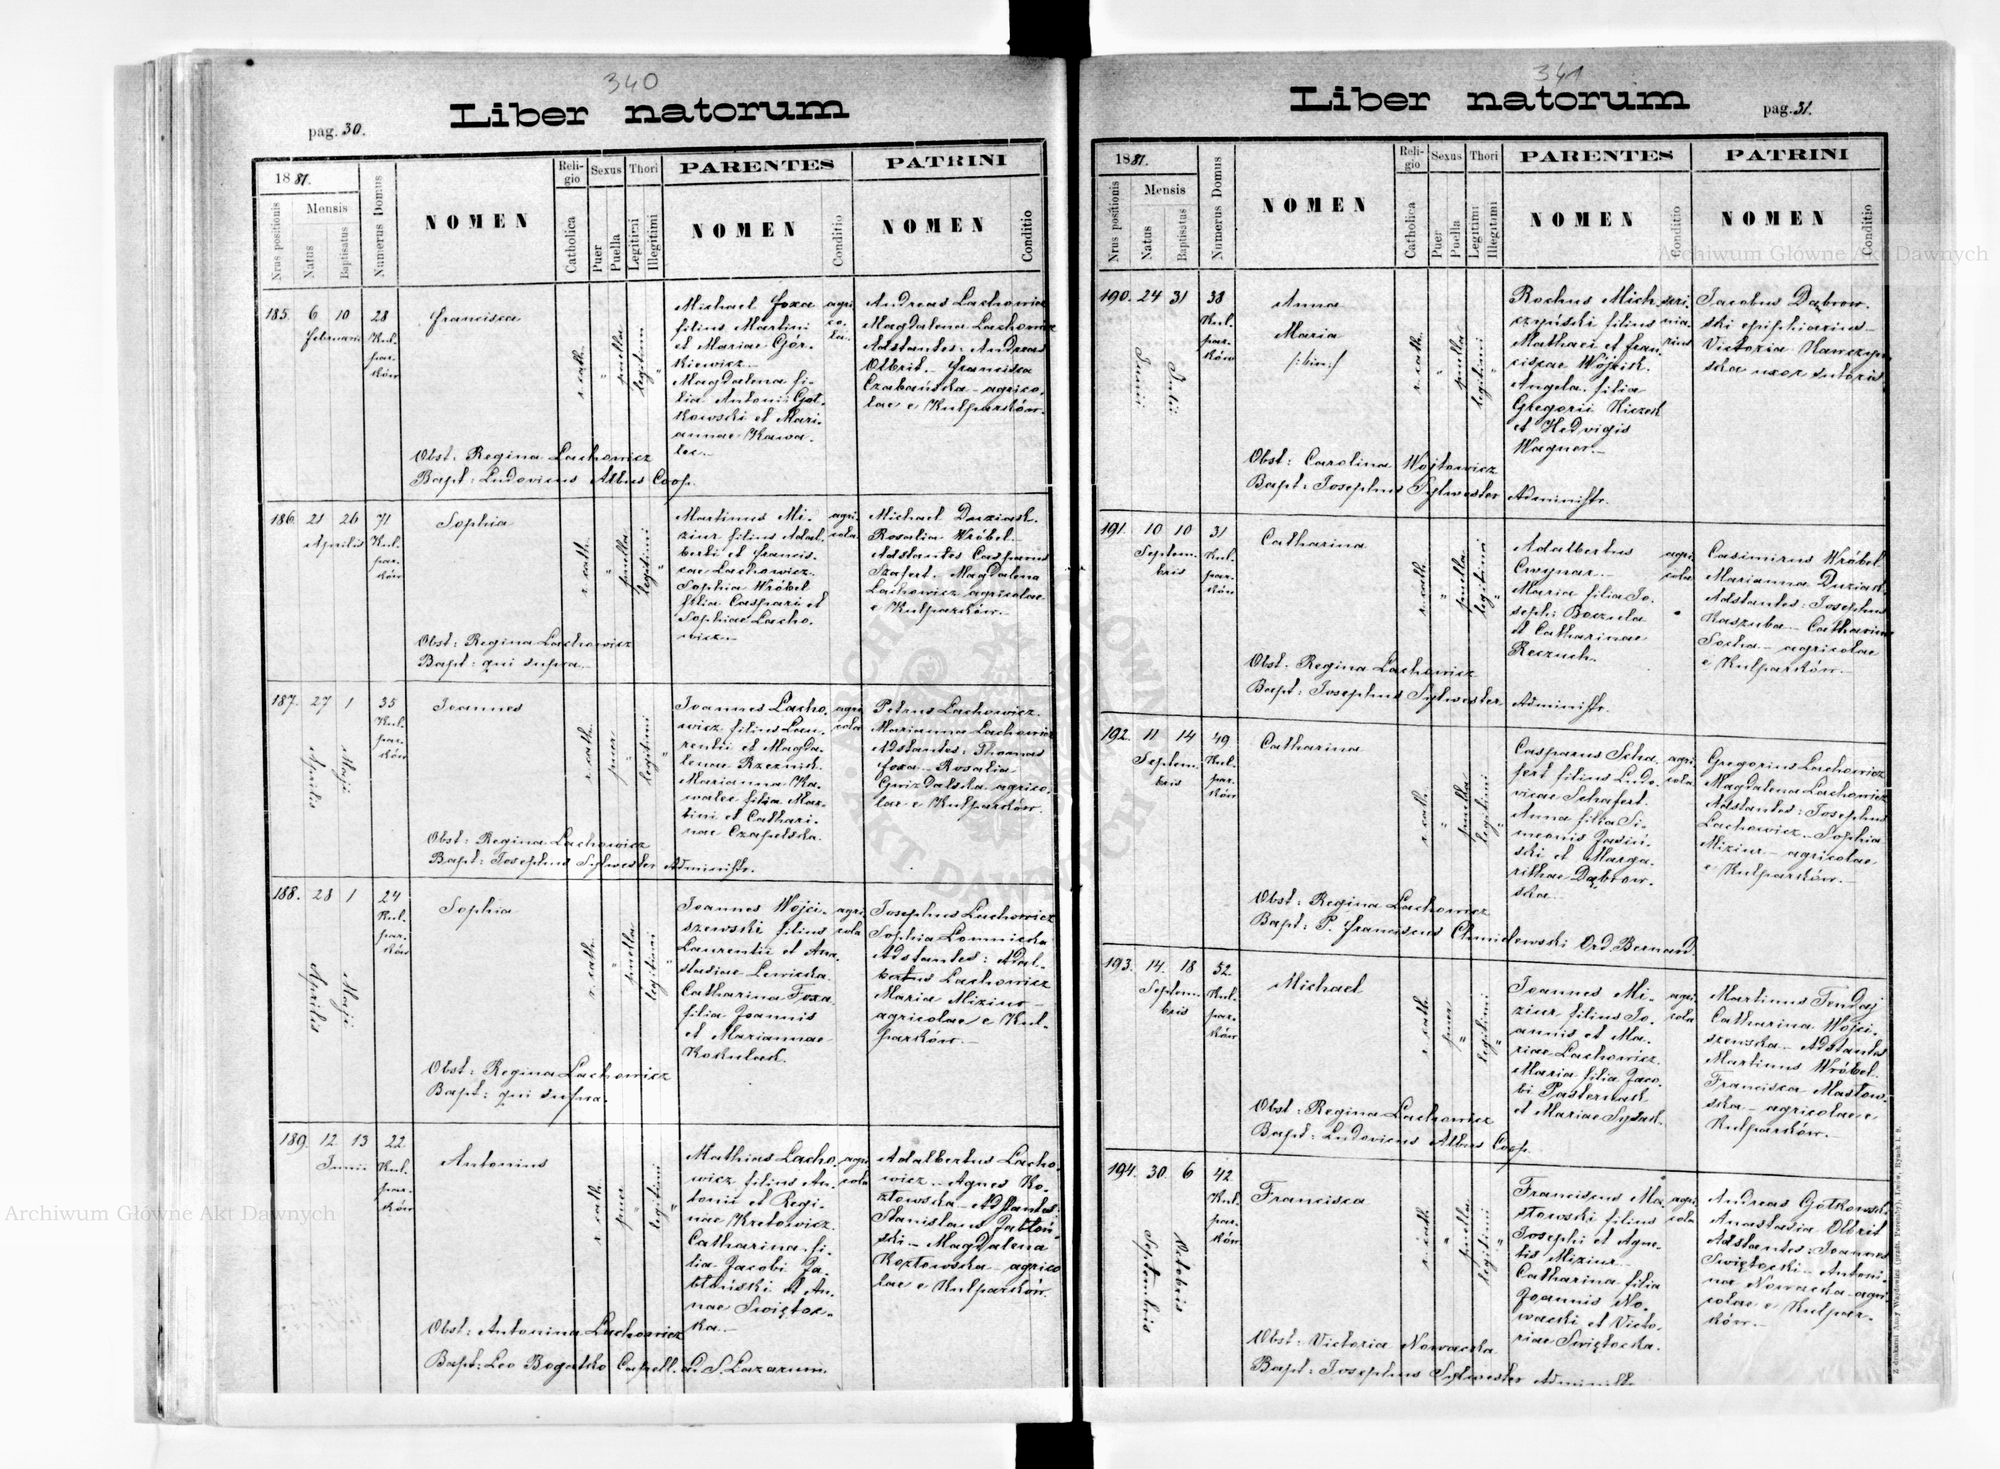 340
Liber natorum
pag. 30.
1881.
Nrus positionis
Mensis
Natus
Baptisatus
Numerus Domus
NOMEN
Religio
Catholica
Sexus
Puer
Puella
Thori
Legitimi
Illegitimi
PARENTES
NOMEN
Conditio
PATRINI
NOMEN
Conditio
185. 6 10 28
Februarii
Kulparków
Francisca
r. cath.
puella
legitimi
Michael Foxa
filius Martini
et Mariae Gór-
kiewicz
Magdalena fi-
lia Antonii Got-
kowski et Mari-
annae Kawa-
lec
agri-
co-
la
Andreas Lachowicz
Magdalena Lachowicz
Adstantes: Andreas
Olbrit. Francisca
Czabańska - agrico-
lae e Kulparków.
Obst: Regina Lachowicz
Bapt: Ludovicus Albus Coop.
186. 21 26 71
Aprilis
Kul-
par-
ków
Sophia
r. cath.
puella
legitimi
Martinus Mi-
ziur filius Adal-
berti et Francis-
cae Lachowicz
Sophia Wróbel
filia Caspari et
Sophiae Lacho-
wicz
agri-
cola
Michael Duziak.
Rosalia Wróbel.
Adstantes Casparus
Szafert. Magdalena
Lachowicz agricolae
e Kulparków.
Obst: Regina Lachowicz
Bapt: qui supra
187. 27 1 35
Aprilis
Maji
Kul-
par-
ków
Joannes
r. cath.
puer
legitimi
Joannes Lacho-
wicz filius Lau-
rentii et Magda-
lenae Rzeznik.
Marianna Ka-
walec filia Mar-
tini et Cathari-
nae Czapelska.
agri-
cola
Petrus Lachowicz.
Marianna Lachowicz
Adstantes: Thomas
Foxa - Rosalia
Gwizdalska agrico-
lae e Kulparków.
Obst: Regina Lachowicz
Bapt: Josephus Sylwester Administr.
188. 28 1 24
Aprilis
Maji
Kul-
par-
ków
Sophia
r. cath.
puella
legitimi
Joannes Wojci-
szewski filius
Laurentii et Ana-
stasiae Lewicka.
Catharina Foxa
filia Joannis
et Mariannae
Kokulak.
agri-
cola
Josephus Lachowicz
Sophia Lomnicka
Adstantes: Adal-
bertus Lachowicz
Maria Miziur
agricolae e Kul-
parków.
Obst: Regina Lachowicz
Bapt: qui supra.
189. 12 13 22
Junii
Kul-
par-
ków
Antonius
r. cath.
puer
legitimi
Mathias Lacho-
wicz filius An-
tonii et Regi-
nae Kretowicz.
Catharina fi-
lia Jacobi Ja-
błoński et An-
nae Swiętoc-
ka
agri-
cola
Adalbertus Lacho-
wicz - Agnes Ko-
złowska - Adstantes:
Stanislaus Jabłoń-
ski - Magdalena
Kozłowska - agrico-
lae e Kulparków.
Obst: Antonina Lachowicz
Bapt: Leo Bogatko Capell. ad S. Lazarum.
341
Liber natorum
pag. 31.
1881.
Nrus positionis
Mensis
Natus
Baptisatus
Numerus Domus
NOMEN
Religio
Catholica
Sexus
Puer
Puella
Thori
Legitimi
Illegitimi
PARENTES
NOMEN
Conditio
PATRINI
NOMEN
Conditio
190. 24 31 38
Junii
Julii
Kul-
par-
ków
Anna
Maria
/: bin :/
r. cath.
puella
legitimi
Rochus Mich-
czyński filius
Mathaei et Fran-
ciscae Wójcik.
Angela filia
Gregorii Kiczek
et Hedvigis
Wagner
scri-
nia-
rius
Jacobus Dąbrow-
ski ephippiarius
Victoria Kawczyn-
ska uxor sutoris
Obst: Carolina Wojtowicz
Bapt: Josephus Sylwester Administr.
191. 10 10 31
Septem-
bris
Kul-
par-
ków
Catharina
r. cath.
puella
legitimi
Adalbertus
Cwynar
Maria filia Jo-
sephi Boczula
et Catharinae
Reczuch.
agri-
cola
Casimirus Wróbel
Marianna Duziak.
Adstantes: Josephus
Kaszuba - Catharina
Socha - agricolae
e Kulparków.
Obst: Regina Lachowicz
Bapt: Josephus Sylwester Administr.
192. 11 14 49
Septem-
bris
Kul-
par-
ków
Catharina
r. cath.
puella
legitimi
Casparus Scha-
fert filius Ludo-
vicae Schafert.
Anna filia Si-
meonis Jasiń-
ski et Marga-
rithae Dąbrow-
ska
agri-
cola
Gregorius Lachowicz
Magdalena Lachowicz
Adstantes: Josephus
Lachowicz - Sophia
Miziur - agricolae
e Kulparków.
Obst: Regina Lachowicz
Bapt: P. Franciscus Chmielewski Ord. Bernard.
193. 14. 18 52
Septem-
bris
Kul-
par-
ków
Michael
r. cath.
puer
legitimi
Joannes Mi-
ziur filius Jo-
annis et Ma-
riae Lachowicz.
Maria filia Jaco-
bi Pasternak
et Mariae Sysak.
agri-
cola
Martinus Tendaj
Catharina Wojci-
szewska - Adstantes
Martinus Wróbel.
Francisca Masłow-
ska - agricolae e
Kulparków.
Obst: Regina Lachowicz
Bapt: Ludovicus Albus Coop.
194. 30 6 42
Septembris
Octobris
Kul-
par-
ków
Francisca
r. cath.
puella
legitimi
Franciscus Ma-
słowski filius
Josephi et Agne-
tis Miziur
Catharina filia
Joannis No-
wacki et Victo-
riae Swiętocka.
agri-
cola
Andreas Gotkowski
Anastasia Olbrit
Adstantes: Joannes
Swiętocki - Antoni-
na Nowacka - agri-
colae e Kulpar-
ków.
Obst: Victoria Nowacka
Bapt: Josephus Sylwester Administr.
Archiwum Główne Akt Dawnych
Archiwum Główne Akt Dawnych